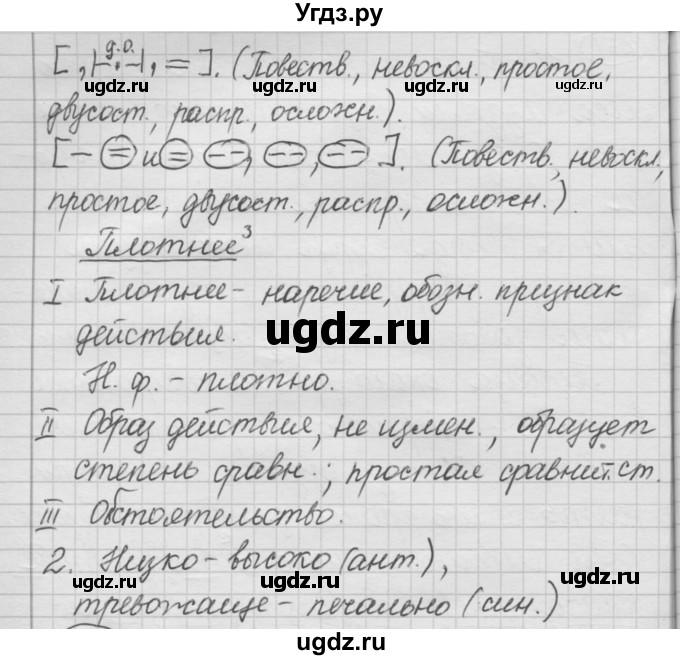 Угдз.ру
д.о.
[ , |–·–| , = ]. (Повеств., невоскл., простое,
двусост., распр., осложн.).
[ – = и = – –, – –, – – ]. (Повеств., невоскл.,
простое, двусост., распр., осложн.).
Плотнее³
I Плотнее – наречие, обозн. признак
действия.
ugdz.ru ugdz.ru ugdz.ru
Н. ф. – плотно.
II Образ действия, не измен., образует
степень сравн.; простая сравнит. ст.
III Обстоятельство.
2. Низко – высоко (ант.),
ugdz.ru ugdz.ru ugdz.ru
тревожаще – печально (син.)
ugdz.ru